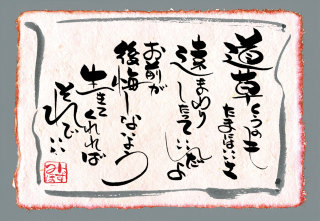 道草くうのも
たまにはいいさ
遠まわり
したっていいんだよ
お前が
後悔しないよう
生きてくれれば
それで…